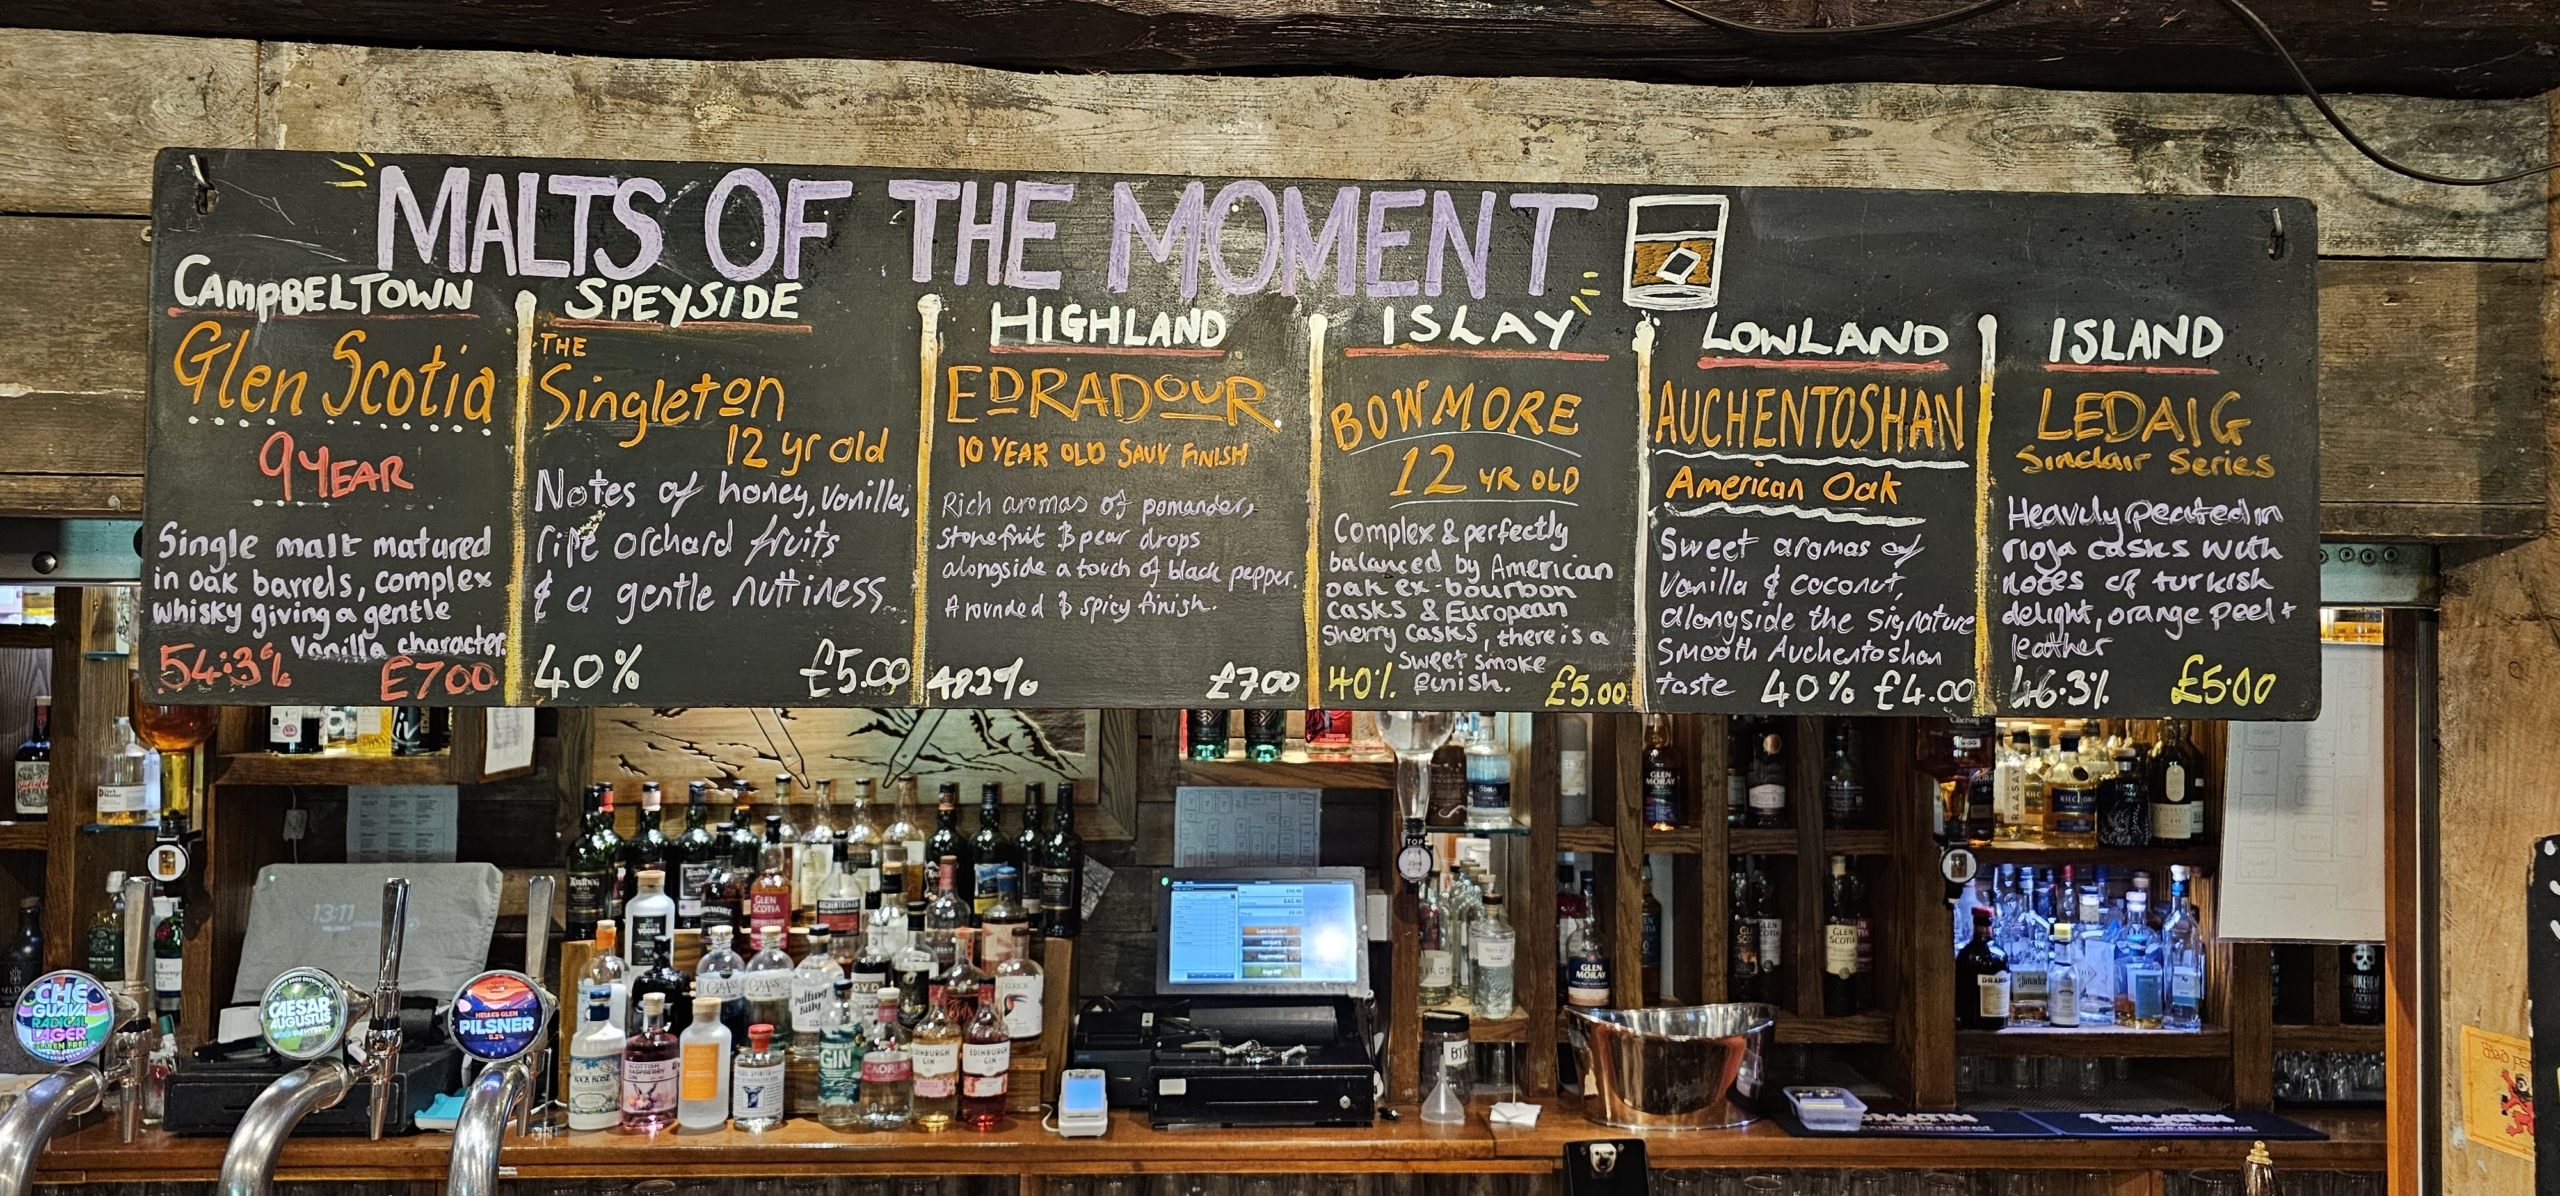 MALTS OF THE MOMENT
CAMPBELTOWN
Glen Scotia
9 YEAR
Single malt matured
in oak barrels, complex
whisky giving a gentle
vanilla character.
54.3% £7.00
SPEYSIDE
THE
Singleton
12 yr old
Notes of honey, vanilla,
ripe orchard fruits
& a gentle nuttiness
40% £5.00
HIGHLAND
EDRADOUR
10 YEAR OLD SAUV FINISH
Rich aromas of pomander,
stonefruit & pear drops
alongside a touch of black pepper.
A rounded & spicy finish.
48.2% £7.00
ISLAY
BOWMORE
12 YR OLD
Complex & perfectly
balanced by American
oak ex-bourbon
casks & European
Sherry casks, there is a
sweet smoke
finish.
40% £5.00
LOWLAND
AUCHENTOSHAN
American Oak
Sweet aromas of
vanilla & coconut,
alongside the signature
smooth Auchentoshan
taste 40% £4.00
ISLAND
LEDAIG
Sinclair Series
Heavily peated in
rioja casks with
notes of turkish
delight, orange peel +
leather
46.3% £5.00
13:11
CHE
GUAVA
RADICAL
LAGER
GLUTEN FREE
CAESAR
AUGUSTUS
PILSNER
GLEN
SCOTIA
AUCHENTOSHAN
GLEN
MORAY
GLEN
MORAY
GLEN
SCOTIA
RAASAY
TOP
ROCK ROSE
GIN
CAORUNN
EDINBURGH
GIN
EDINBURGH
GIN
TOMATIN
TOMATIN